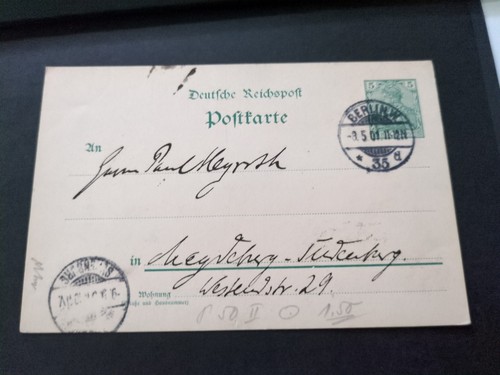 Deutsche Reichspost
Postkarte
5 5
BERLIN W
-8.5.01. 11-12N
* 35 a
An
Herrn Paul
in Magdeburg-Sudenburg.
Westendstr. 29.
Wohnung
(Straße und Hausnummer)
P 50 II O 1.50